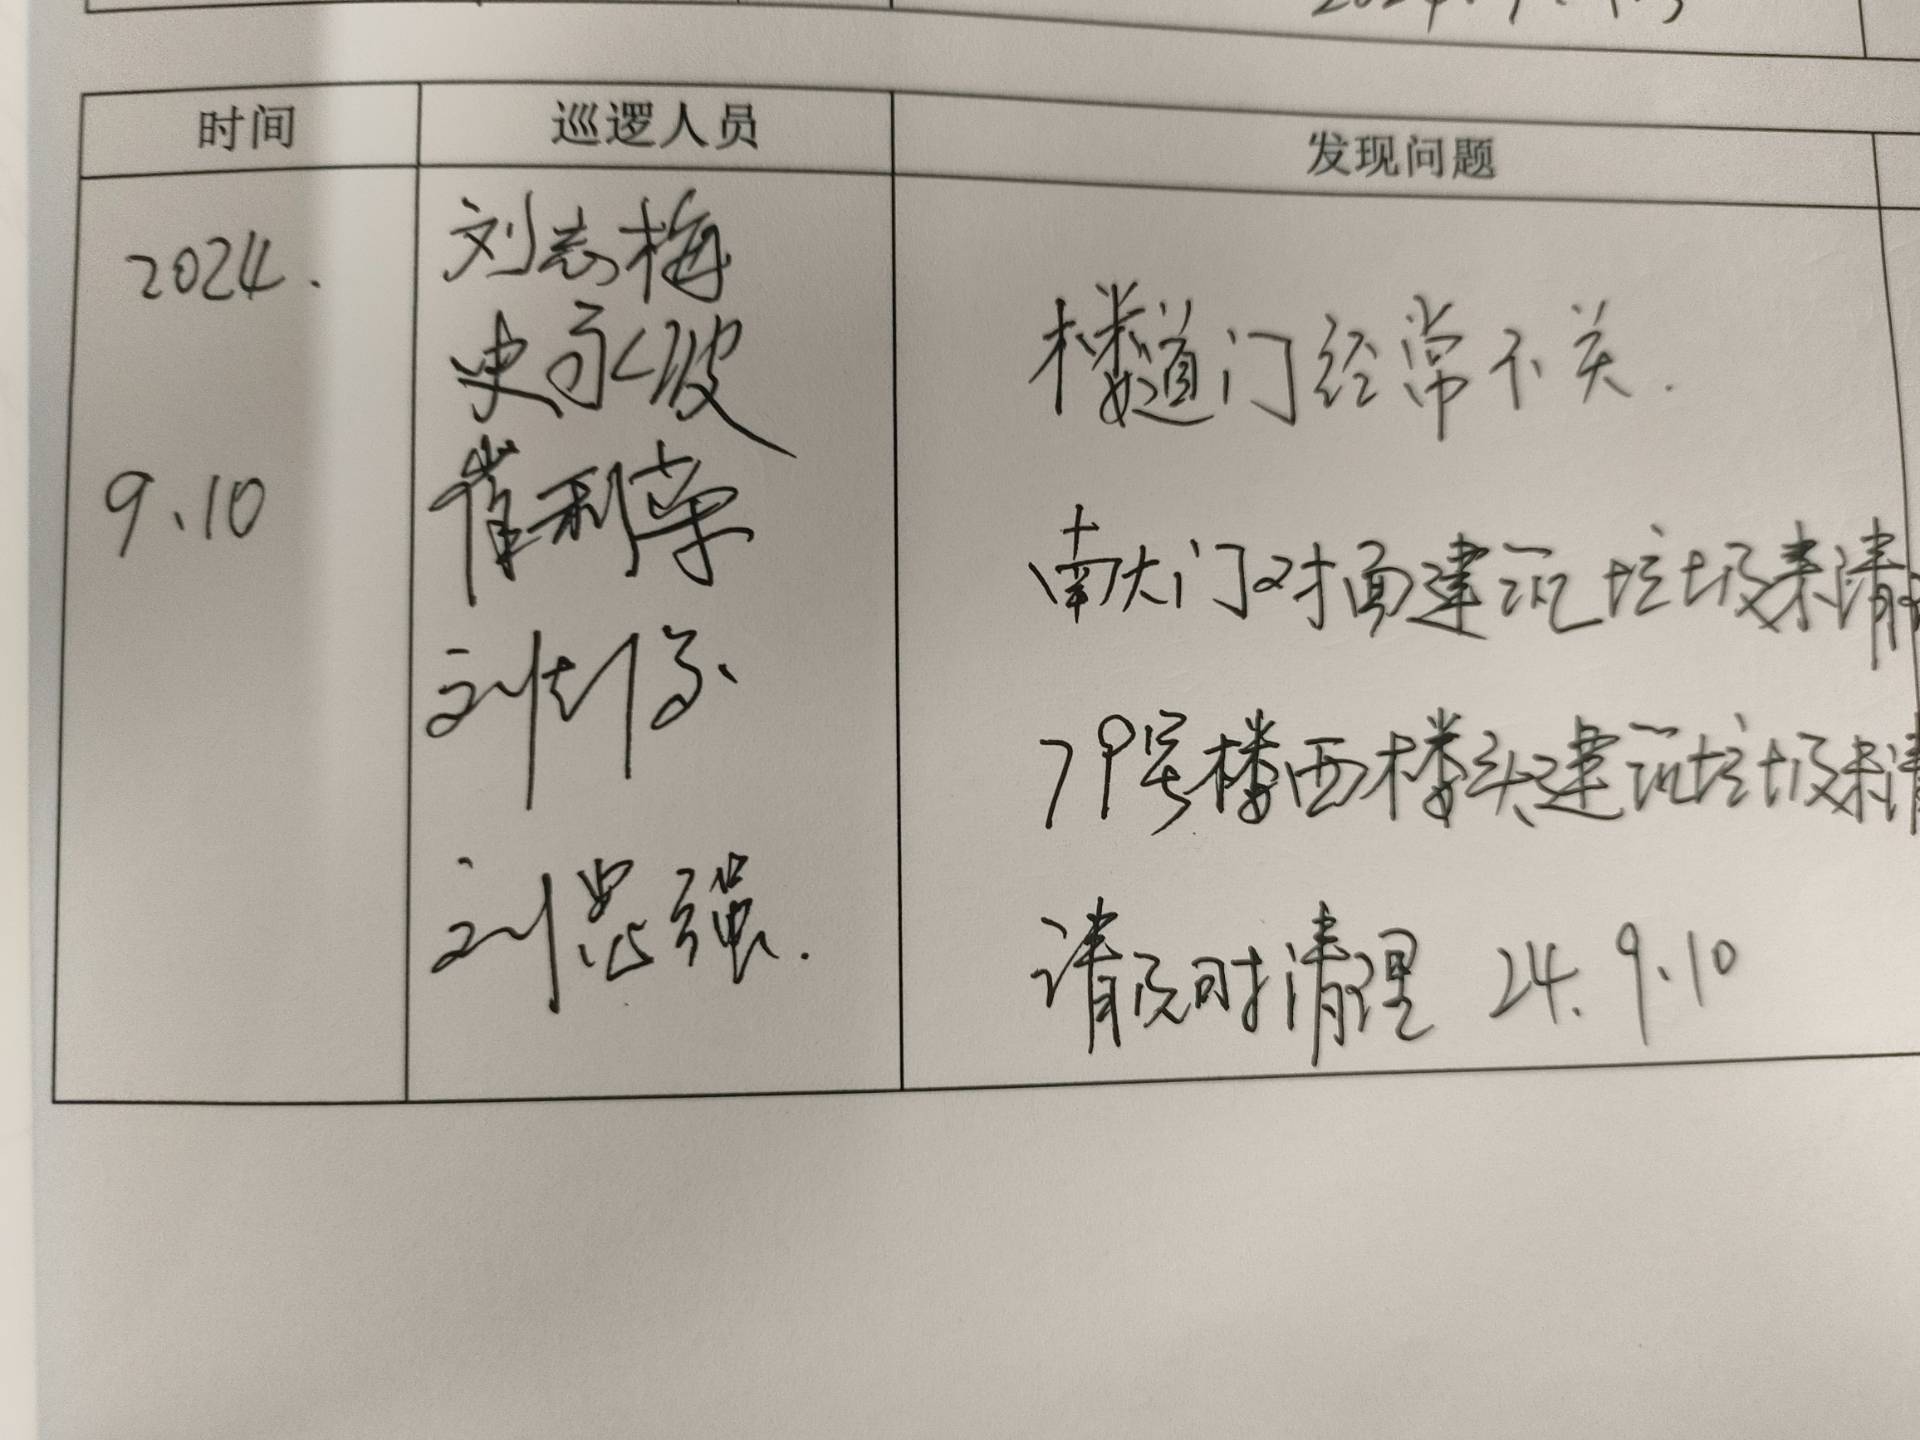 时间 巡逻人员 发现问题
2024.
9.10
刘志梅
史永波
崔利荣
刘
刘思强.
楼道门经常不关.
南大门对面建筑垃圾未清
79号楼西楼头建筑垃圾未清
请及时清理 24.9.10